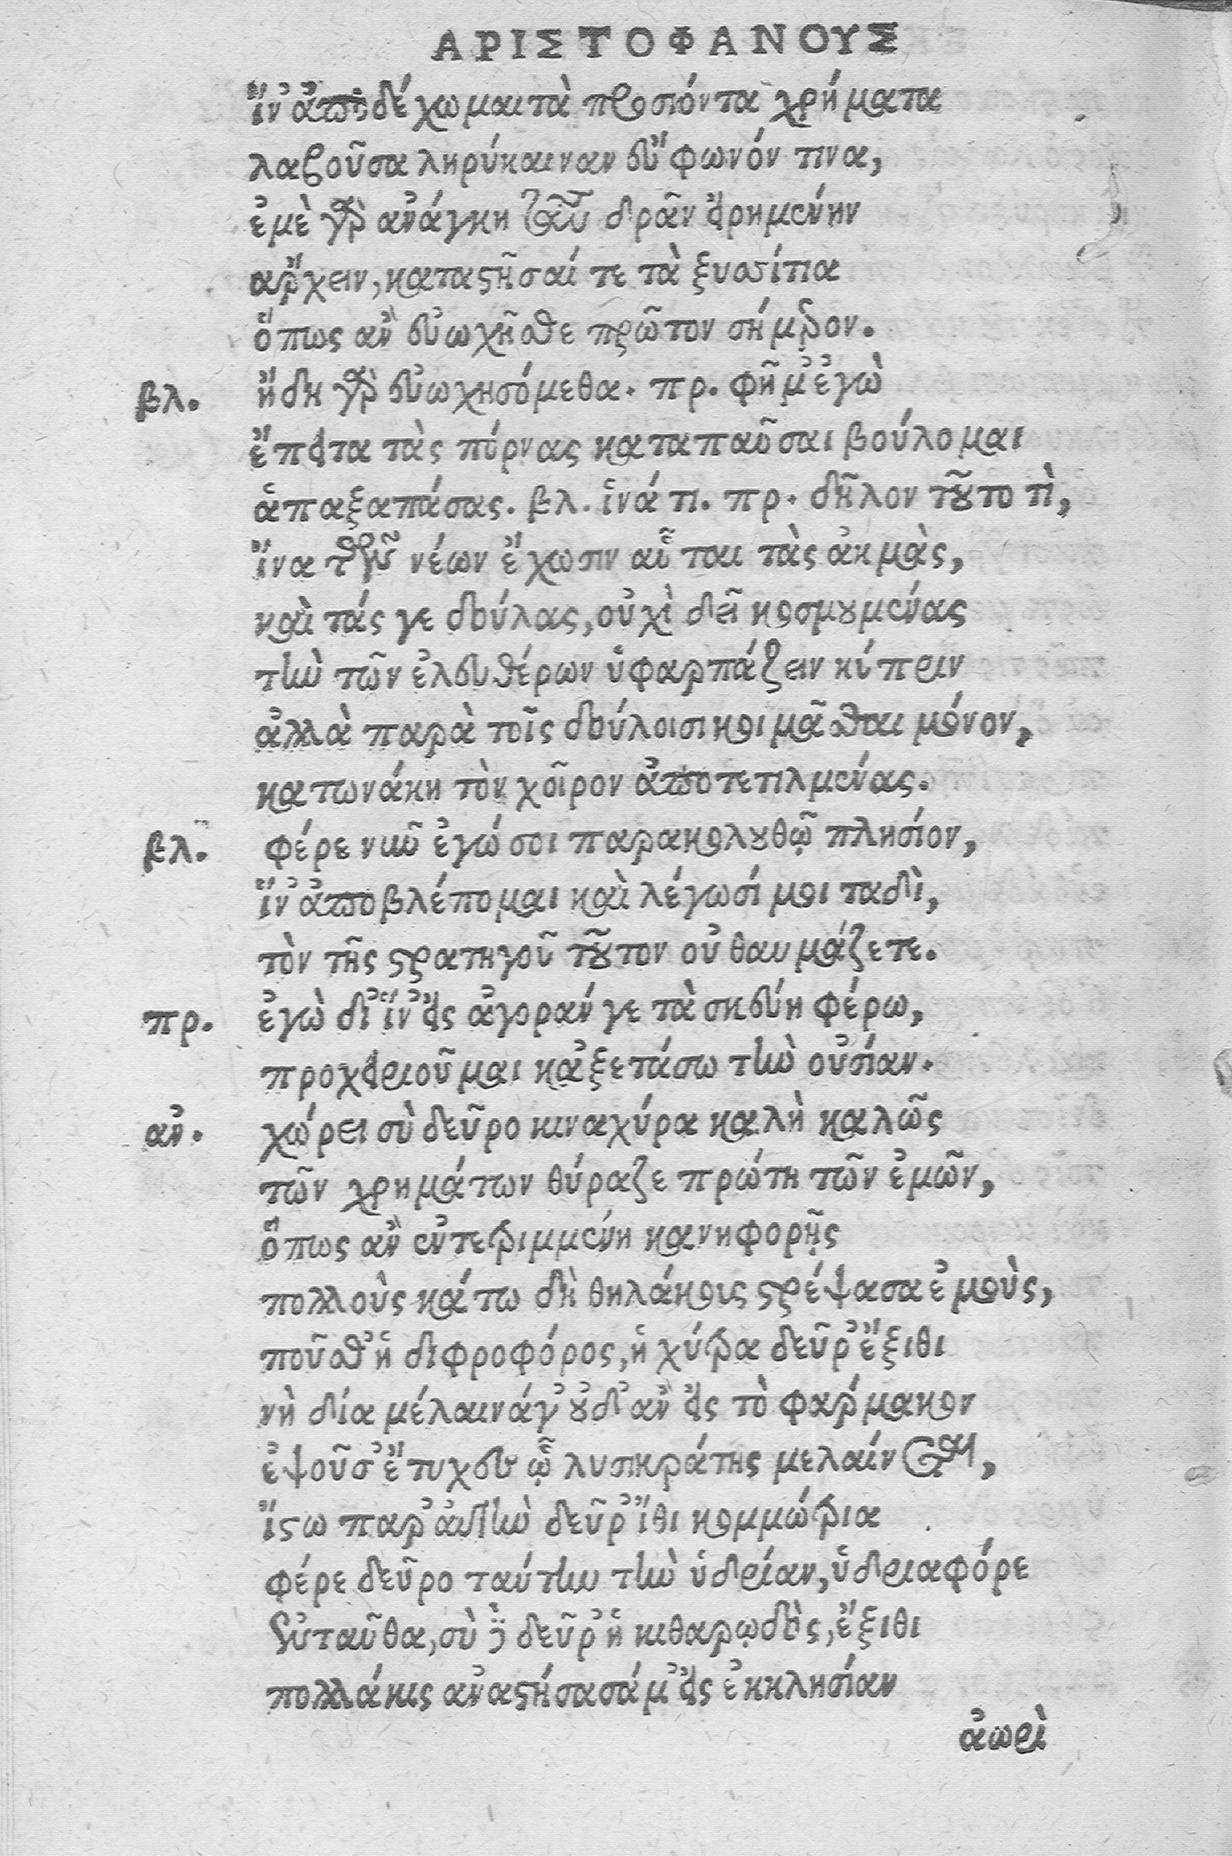 ΑΡΙΣΤΟΦΑΝΟΥΣ
ἵν ἀποδέχωμαι τὰ προσιόντα χρήματα
λαβοῦσα κηρύκαιναν εὔφωνόν τινα,
ἐμὲ γὰρ ἀνάγκη ταῦτα δρᾶν ᾑρημένην
ἄρχειν, καταστῆσαί τε τὰ ξυσσίτια
ὅπως ἂν εὐωχῆσθε πρῶτον σήμερον.
βλ. ἤδη γὰρ εὐωχησόμεθα. πρ. φῆμ' ἐγὼ
ἔπειτα τὰς πόρνας καταπαῦσαι βούλομαι
ἁπαξαπάσας. βλ. ἱνάτι. πρ. δῆλον τοῦτο τὶ,
ἵνα τῶν νέων ἔχωσιν αὗται τὰς ἀκμὰς,
καὶ τάς γε δούλας, οὐχὶ δεῖ κοσμουμένας
τὴν τῶν ἐλευθέρων ὑφαρπάζειν κύπριν
ἀλλὰ παρὰ τοῖς δούλοισι κοιμᾶσθαι μόνον,
κατωνάκη τὸν χοῖρον ἀποτετιλμένας.
βλ. φέρε νῦν ἐγώ σοι παρακολουθῶ πλησίον,
ἵν' ἀποβλέπομαι καὶ λέγωσί μοι ταδὶ,
τὸν τῆς στρατηγοῦ τοῦτον οὐ θαυμάζετε.
πρ. ἐγὼ δ' ἵν' εἰς ἀγοράν γε τὰ σκεύη φέρω,
προχειριοῦμαι κἀξετάσω τὴν οὐσίαν.
ἀν. χώρει σὺ δεῦρο κιναχύρα καλὴ καλῶς
τῶν χρημάτων θύραζε πρώτη τῶν ἐμῶν,
ὅπως ἂν ἐντετριμμένη κανηφορῇς
πολλοὺς κάτω δὴ θηλάκοις στρέψασα ἐμοὺς,
ποῦ σθ' ἡ διφροφόρος, ἡ χύτρα δεῦρ' ἔξιθι
νὴ δία μέλαινά γ' οὐδ' ἂν εἰς τὸ φάρμακον
ἑψοῦσ' ἔτυχες ᾧ λυσικράτης μελαίνεται,
ἵστω παρ' αὐτὴν δεῦρ' ἴθι κομμώτρια
φέρε δεῦρο ταύτην τὴν ὑδρίαν, ὑδριαφόρε
ἐνταῦθα, σὺ δὲ δεῦρ' ἡ κιθαρῳδὸς, ἔξιθι
πολλάκις ἀναστήσασά μ' εἰς ἐκκλησίαν
ἀωρὶ